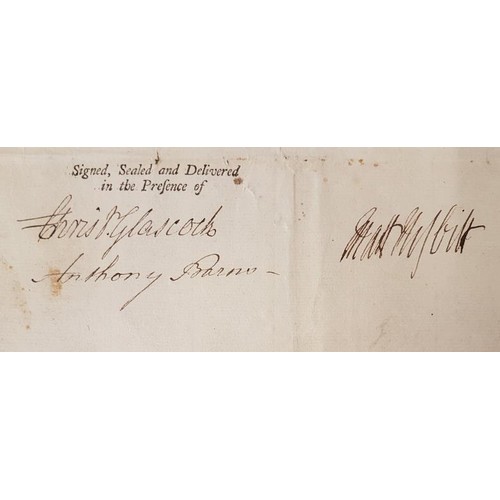 Signed, Sealed and Delivered
in the Preſence of
Chrisʳ. Glascock
Anthony Barnes
Matt Neſbitt